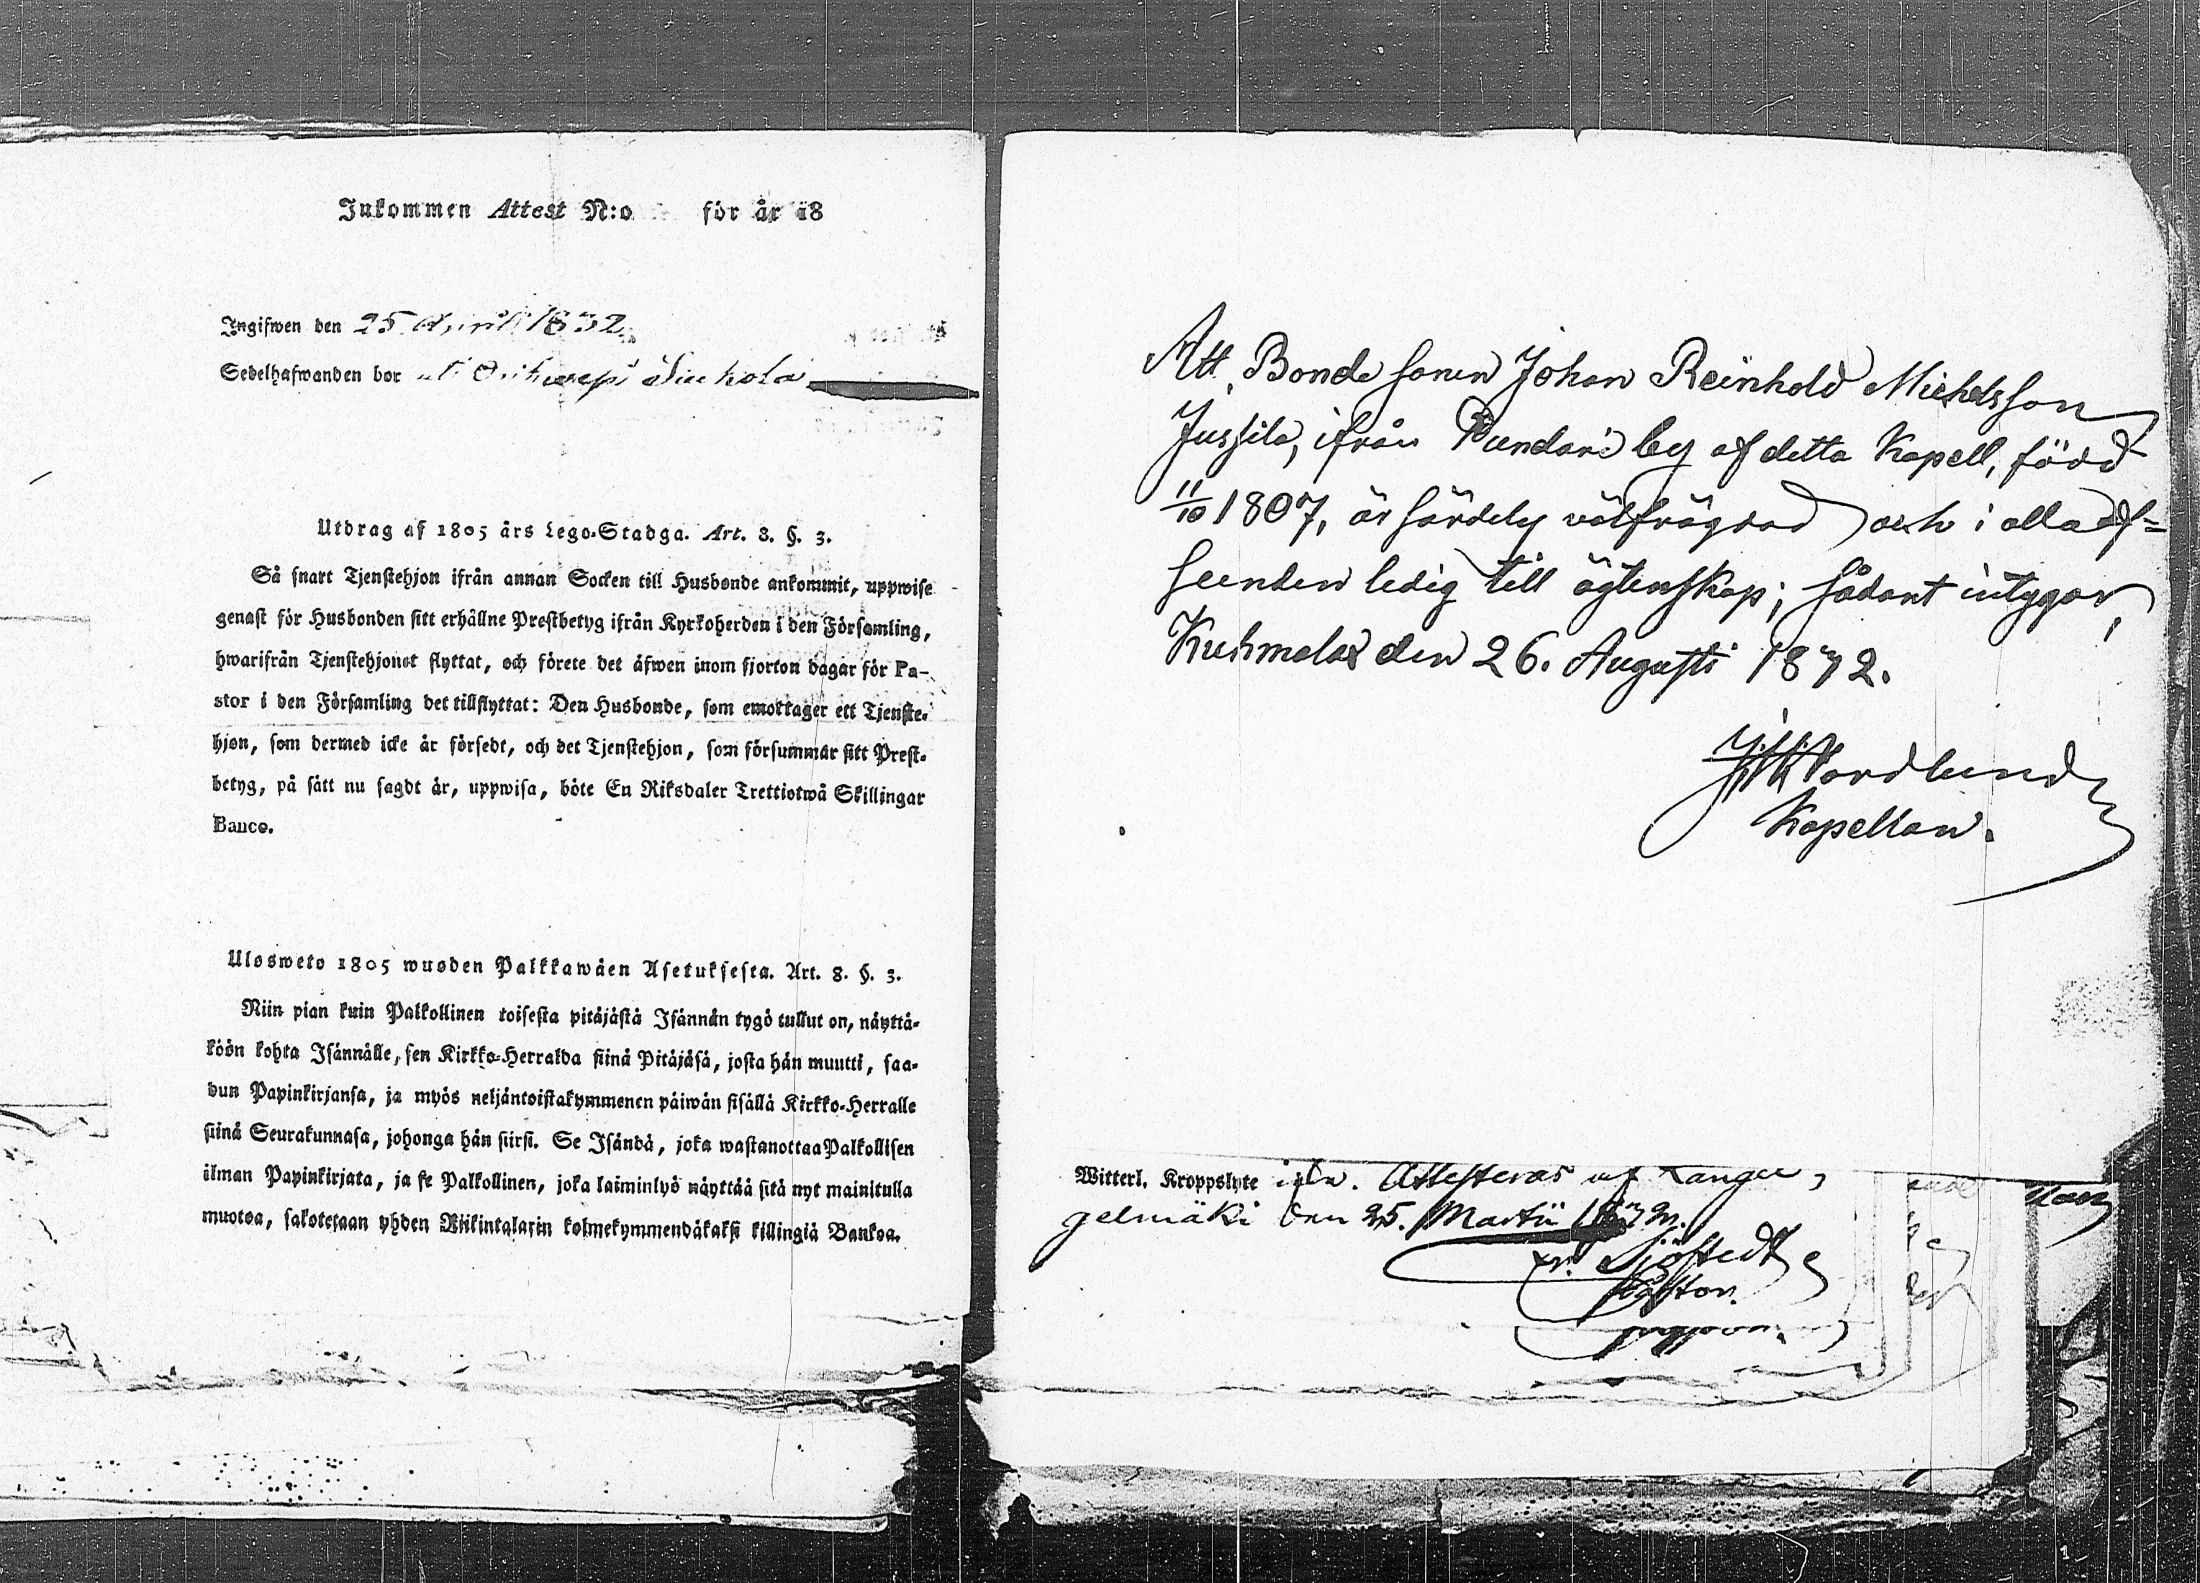 Inkommen Attest N:o för år 18
Ingifwen den 25 April 1832
Sedelhafwanden bor
Utdrag af 1805 års Lego-Stadga. Art. 8. §. 3.
Så snart Tjenstehjon ifrån annan Socken till Husbonde ankommit, uppwise
genast för Husbonden sitt erhållne Prestbetyg ifrån Kyrkoherden i den Församling,
hwarifrån Tjenstehjonet flyttat, och förete det äfwen inom fjorton dagar för Pa-
stor i den Församling det tillflyttat: Den Husbonde, som emottager ett Tjenste-
hjon, som dermed icke är försedt, och det Tjenstehjon, som försummar sitt Prest-
betyg, på sätt nu sagdt är, uppwisa, böte En Riksdaler Trettiotwå Skillingar
Banco.
Ulosweto 1805 wuoden Palkkawäen Asetuksesta. Art. 8. §. 3.
Niin pian kuin Palkollinen toisesta pitäjästä Isännän tygö tullut on, näyttä-
köön kohta Isännälle, sen Kirkko-Herralda siinä Pitäjäsä, josta hän muutti, saa-
dun Papinkirjansa, ja myös neljäntoistakymmenen päiwän sisällä Kirkko-Herralle
siinä Seurakunnasa, johonga hän siirsi. Se Isändä, joka wastanottaa Palkollisen
ilman Papinkirjata, ja se Palkollinen, joka laiminlyö näyttää sitä nyt mainitulla
muotoa, sakotetaan yhden Riikintalarin kolmekymmendäkaksi killingiä Bankoa.
Att Bonde sonen Johan Reinhold Michelsson
Jussila, ifrån Pundars by af detta Kapell, född
11/10 1807, är särdeles välfrägdad och i alla af-
seenden ledig till ägtenskap; sådant intygar,
Kuhmalax den 26. Augusti 1832.
Nordlund
Kapellan.
Witterl. Kroppslyte Attesteras af Kange,
gelmäki den 25. Martii 1832.
Sjöstedt
Pastor.